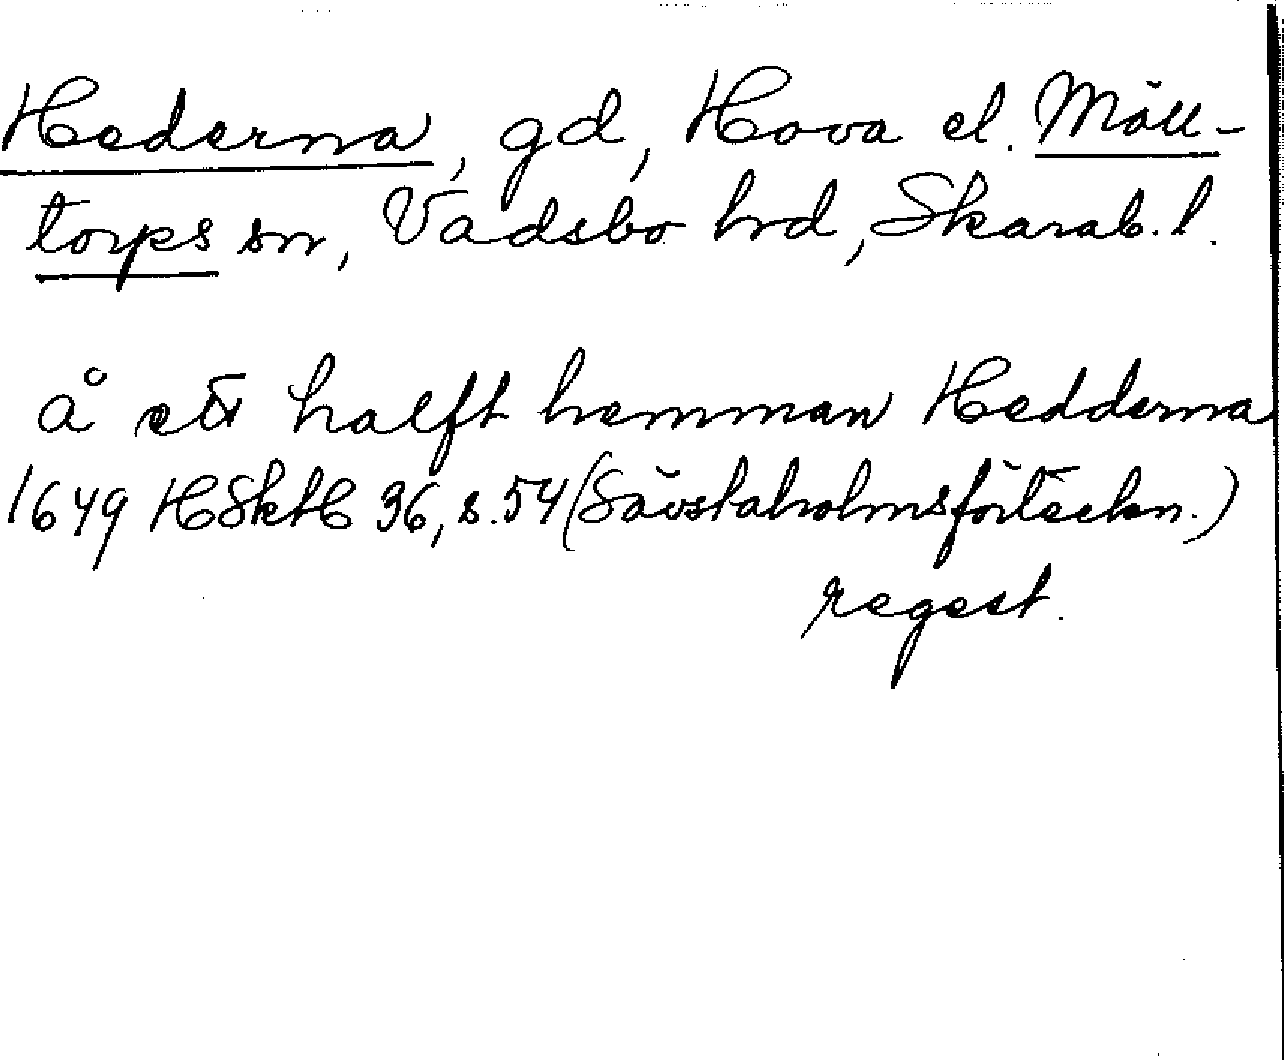 Hederna, gd, Hova el. Möll-
torps sn, Vadsbo hrd, Skarab. l.
å ett halft hemman Hedderna
1649 HSkH 36, s. 54 (Sävstaholmsförteckn.)
regest.